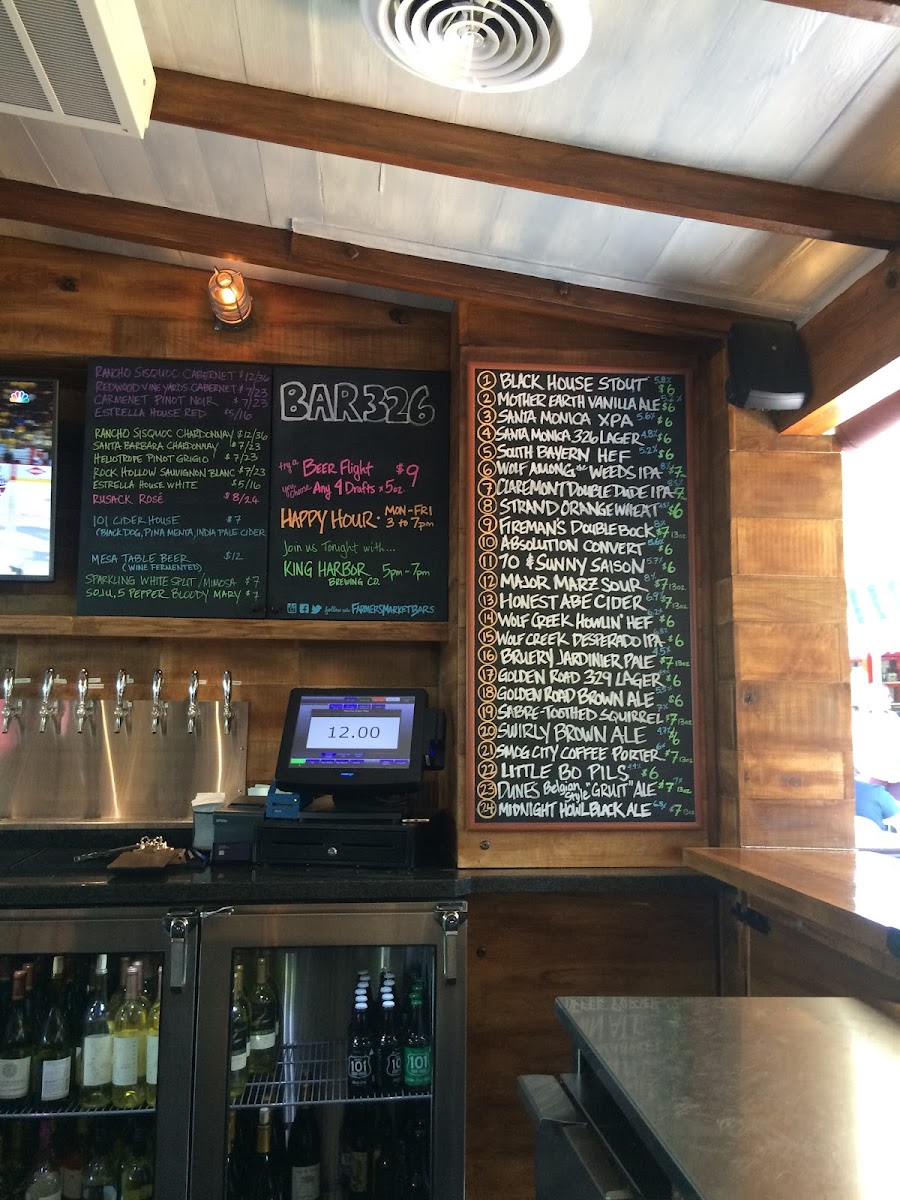 RANCHO SISQUOC CABERNET $12/36
REDWOOD VINEYARDS CABERNET $7/23
CARMENET PINOT NOIR $7/23
ESTRELLA HOUSE RED $5/16
RANCHO SISQUOC CHARDONNAY $12/36
SANTA BARBARA CHARDONNAY $7/23
HELIOTROPE PINOT GRIGIO $7/23
ROCK HOLLOW SAUVIGNON BLANC $7/23
ESTRELLA HOUSE WHITE $5/16
RUSACK ROSÉ $8/24
101 CIDER HOUSE $7
(BLACK DOG, PINA MENTA, INDIA PALE CIDER
MESA TABLE BEER $12
(WINE FERMENTED)
SPARKLING WHITE SPLIT/MIMOSA $7
SOJU, 5 PEPPER BLOODY MARY $7
BAR 326
try a BEER FLIGHT $9
you choose ANY 4 DRAFTS x 5oz.
HAPPY HOUR - MON-FRI
3 to 7pm
Join us Tonight with...
KING HARBOR 5pm-7pm
BREWING CO.
follow us: FARMERSMARKETBARS
12.00
1 BLACK HOUSE STOUT 5.8% $6
2 MOTHER EARTH VANILLA ALE 5.2% $6
3 SANTA MONICA XPA 5.6% $6
4 SANTA MONICA 326 LAGER 4.8% $6
5 SOUTH BAYERN HEF 5.2% $6
6 WOLF AMONG the WEEDS IPA 8% $7
7 CLAREMONT DOUBLE DUDE IPA $7
8 STRAND ORANGE WHEAT $6
9 FIREMAN'S DOUBLE BOCK 8% $7 13oz
10 ABSOLUTION CONVERT 5.6% $6
11 70 & SUNNY SAISON 5.7% $6
12 MAJOR MARZ SOUR 8% $7 13oz
13 HONEST ABE CIDER 6.9% $7 13oz
14 WOLF CREEK HOWLIN' HEF $6
15 WOLF CREEK DESPERADO IPA $6
16 BRUERY JARDINIER PALE $7 13oz
17 GOLDEN ROAD 329 LAGER $6
18 GOLDEN ROAD BROWN ALE $6
19 SABRE-TOOTHED SQUIRREL 7% $7 13oz
20 SWIRLY BROWN ALE $6
21 SMOG CITY COFFEE PORTER $7 13oz
22 LITTLE BO PILS $6
23 DUNES Belgian Style "GRUIT" ALE 7% $7 13oz
24 MIDNIGHT HOWL BLACK ALE $7 13oz
101
101
101